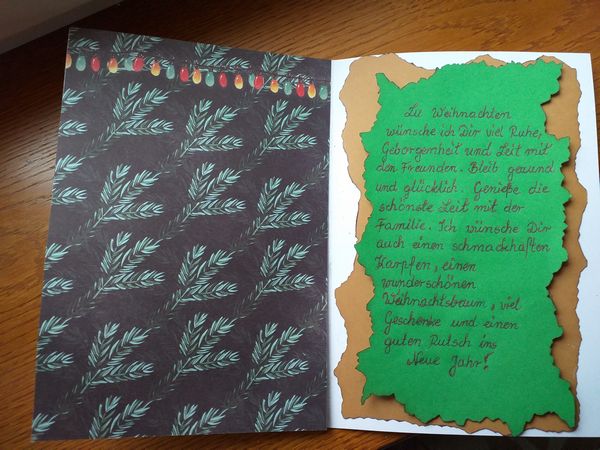 Zu Weihnachten
wünsche ich Dir viel Ruhe,
Geborgenheit und Zeit mit
den Freunden. Bleib gesund
und glücklich. Genieße die
schönste Zeit mit der
Familie. Ich wünsche Dir
auch einen schmackhaften
Karpfen, einen
wunderschönen
Weihnachtsbaum, viel
Geschenke und einen
guten Rutsch ins
Neue Jahr!